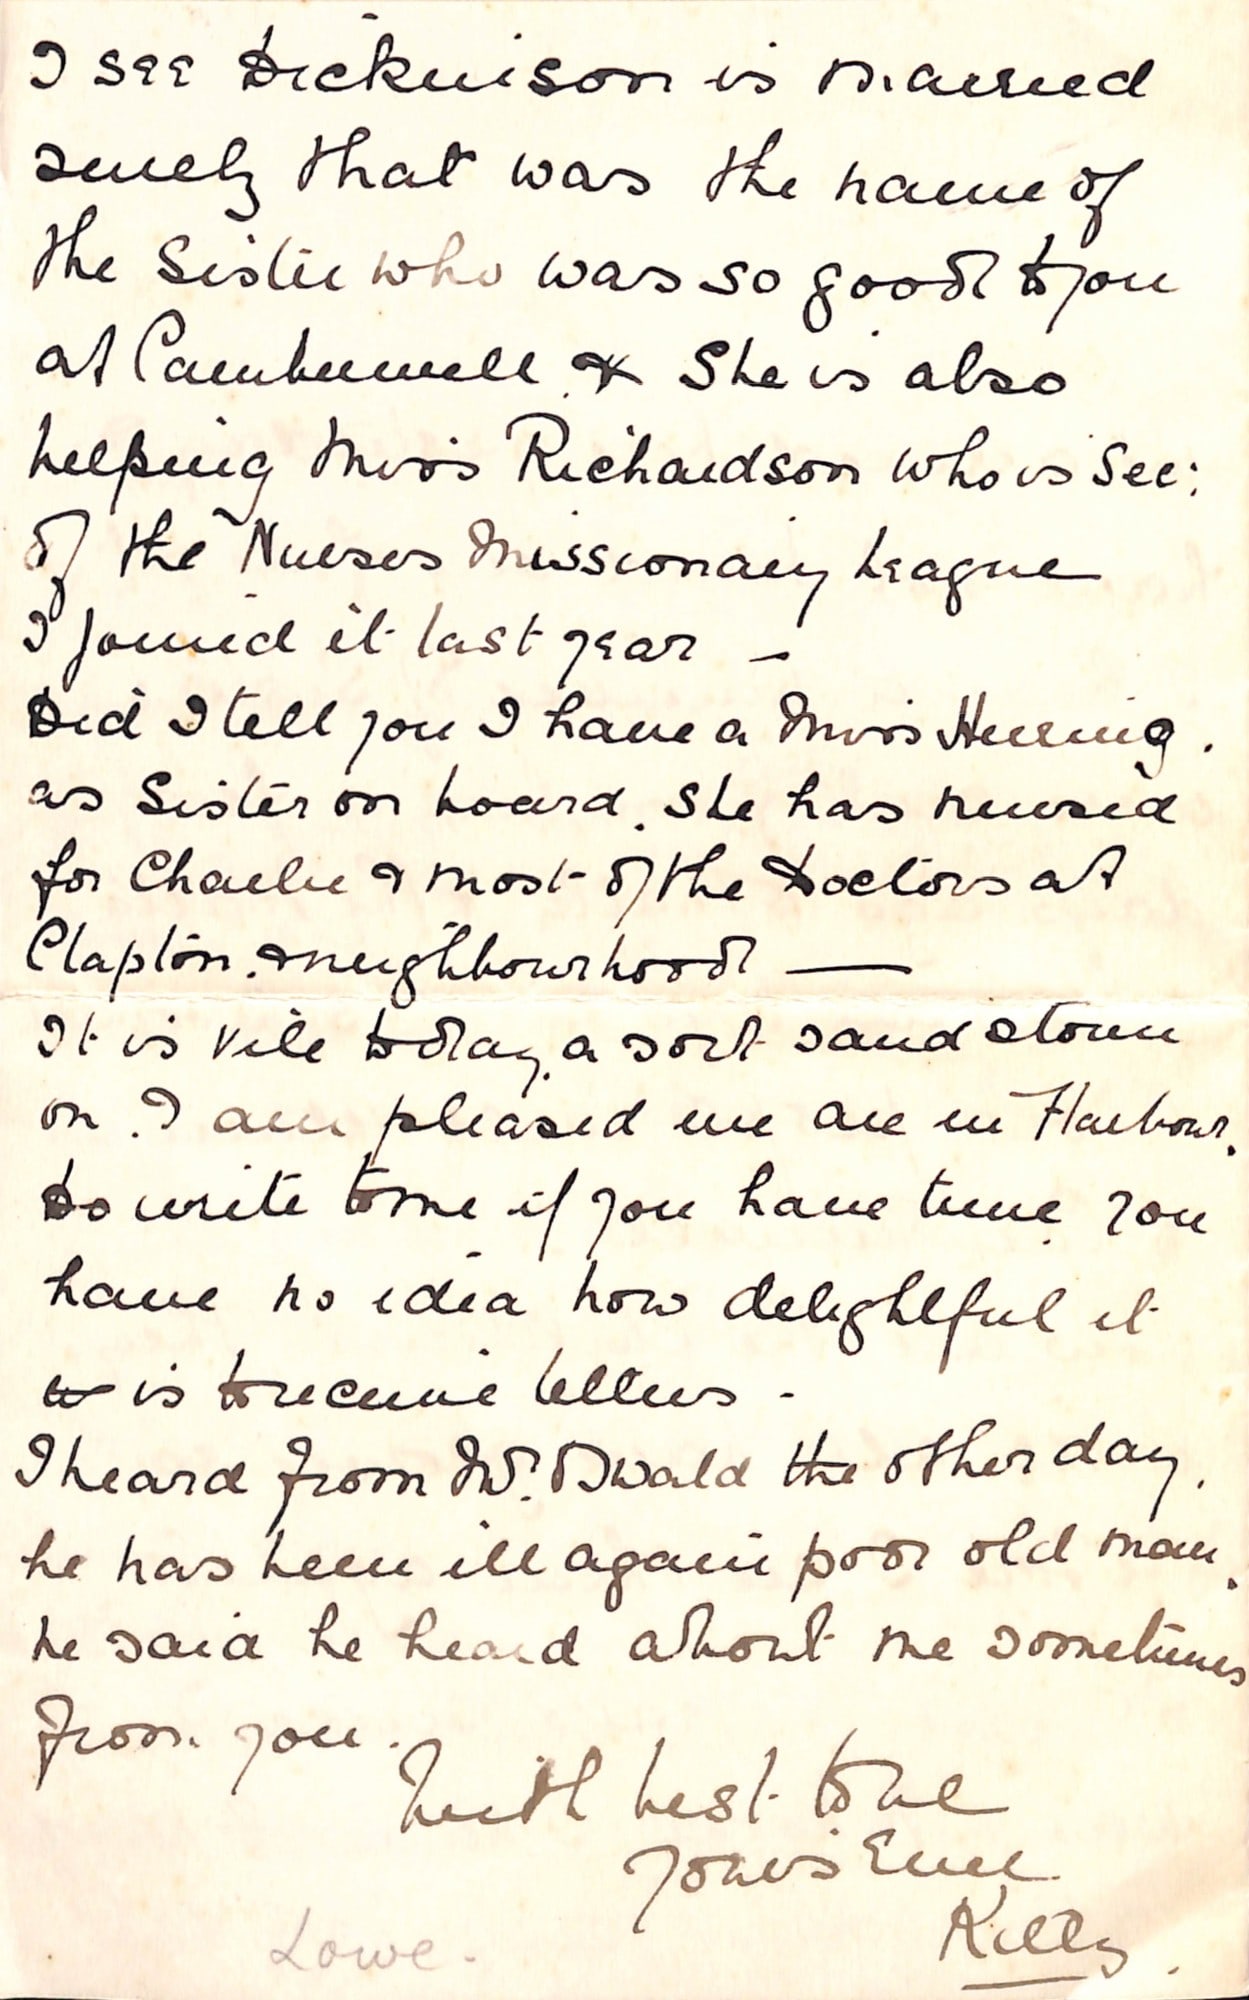 I see Dickinson is married
surely that was the name of
the Sister who was so good to you
at Camberwell & She is also
helping Miss Richardson who is Sec:
of the Nurses Missionary League
I joined it last year —
Did I tell you I have a Miss Hering.
as Sister on board. She has nursed
for Charlie & most of the Doctors at
Clapton. & neighbourhood —
It is vile today. a sort sand storm
on. I am pleased we are in Harbour.
Do write to me if you have time you
have no idea how delightful it
is to receive letters -
I heard from Mr. Oswald the other day.
he has been ill again poor old man.
he said he heard about me sometimes
from you.
With best to all
Yours Ever
Kitty.
Lowe.